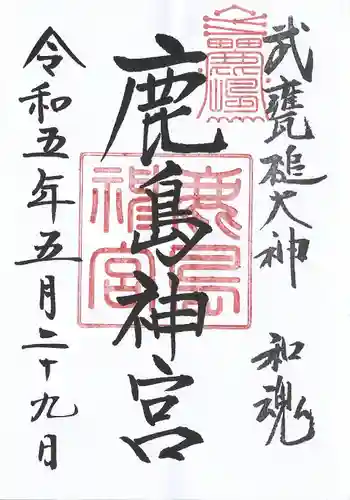 武甕槌大神 和魂
鹿島神宮
鹿島
神宮
令和五年五月二十九日